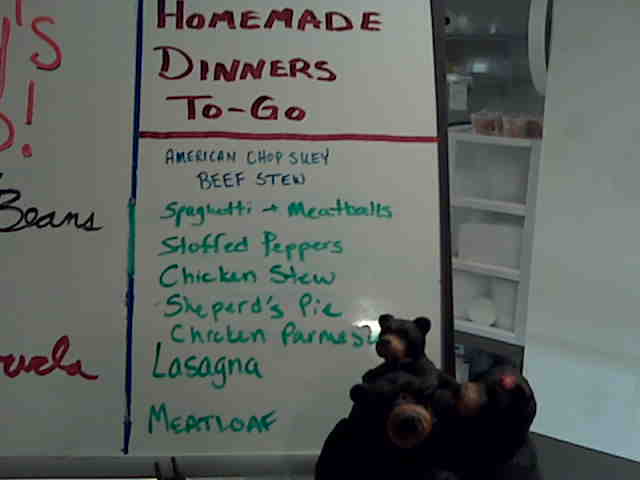 'S
!
HOMEMADE
DINNERS
TO-GO
AMERICAN CHOP SUEY
BEEF STEW
Beans
Spaghetti + Meatballs
Stoffed Peppers
Chicken Stew
Sheperd's Pie
Chicken
Lasagna
MEATLOAF